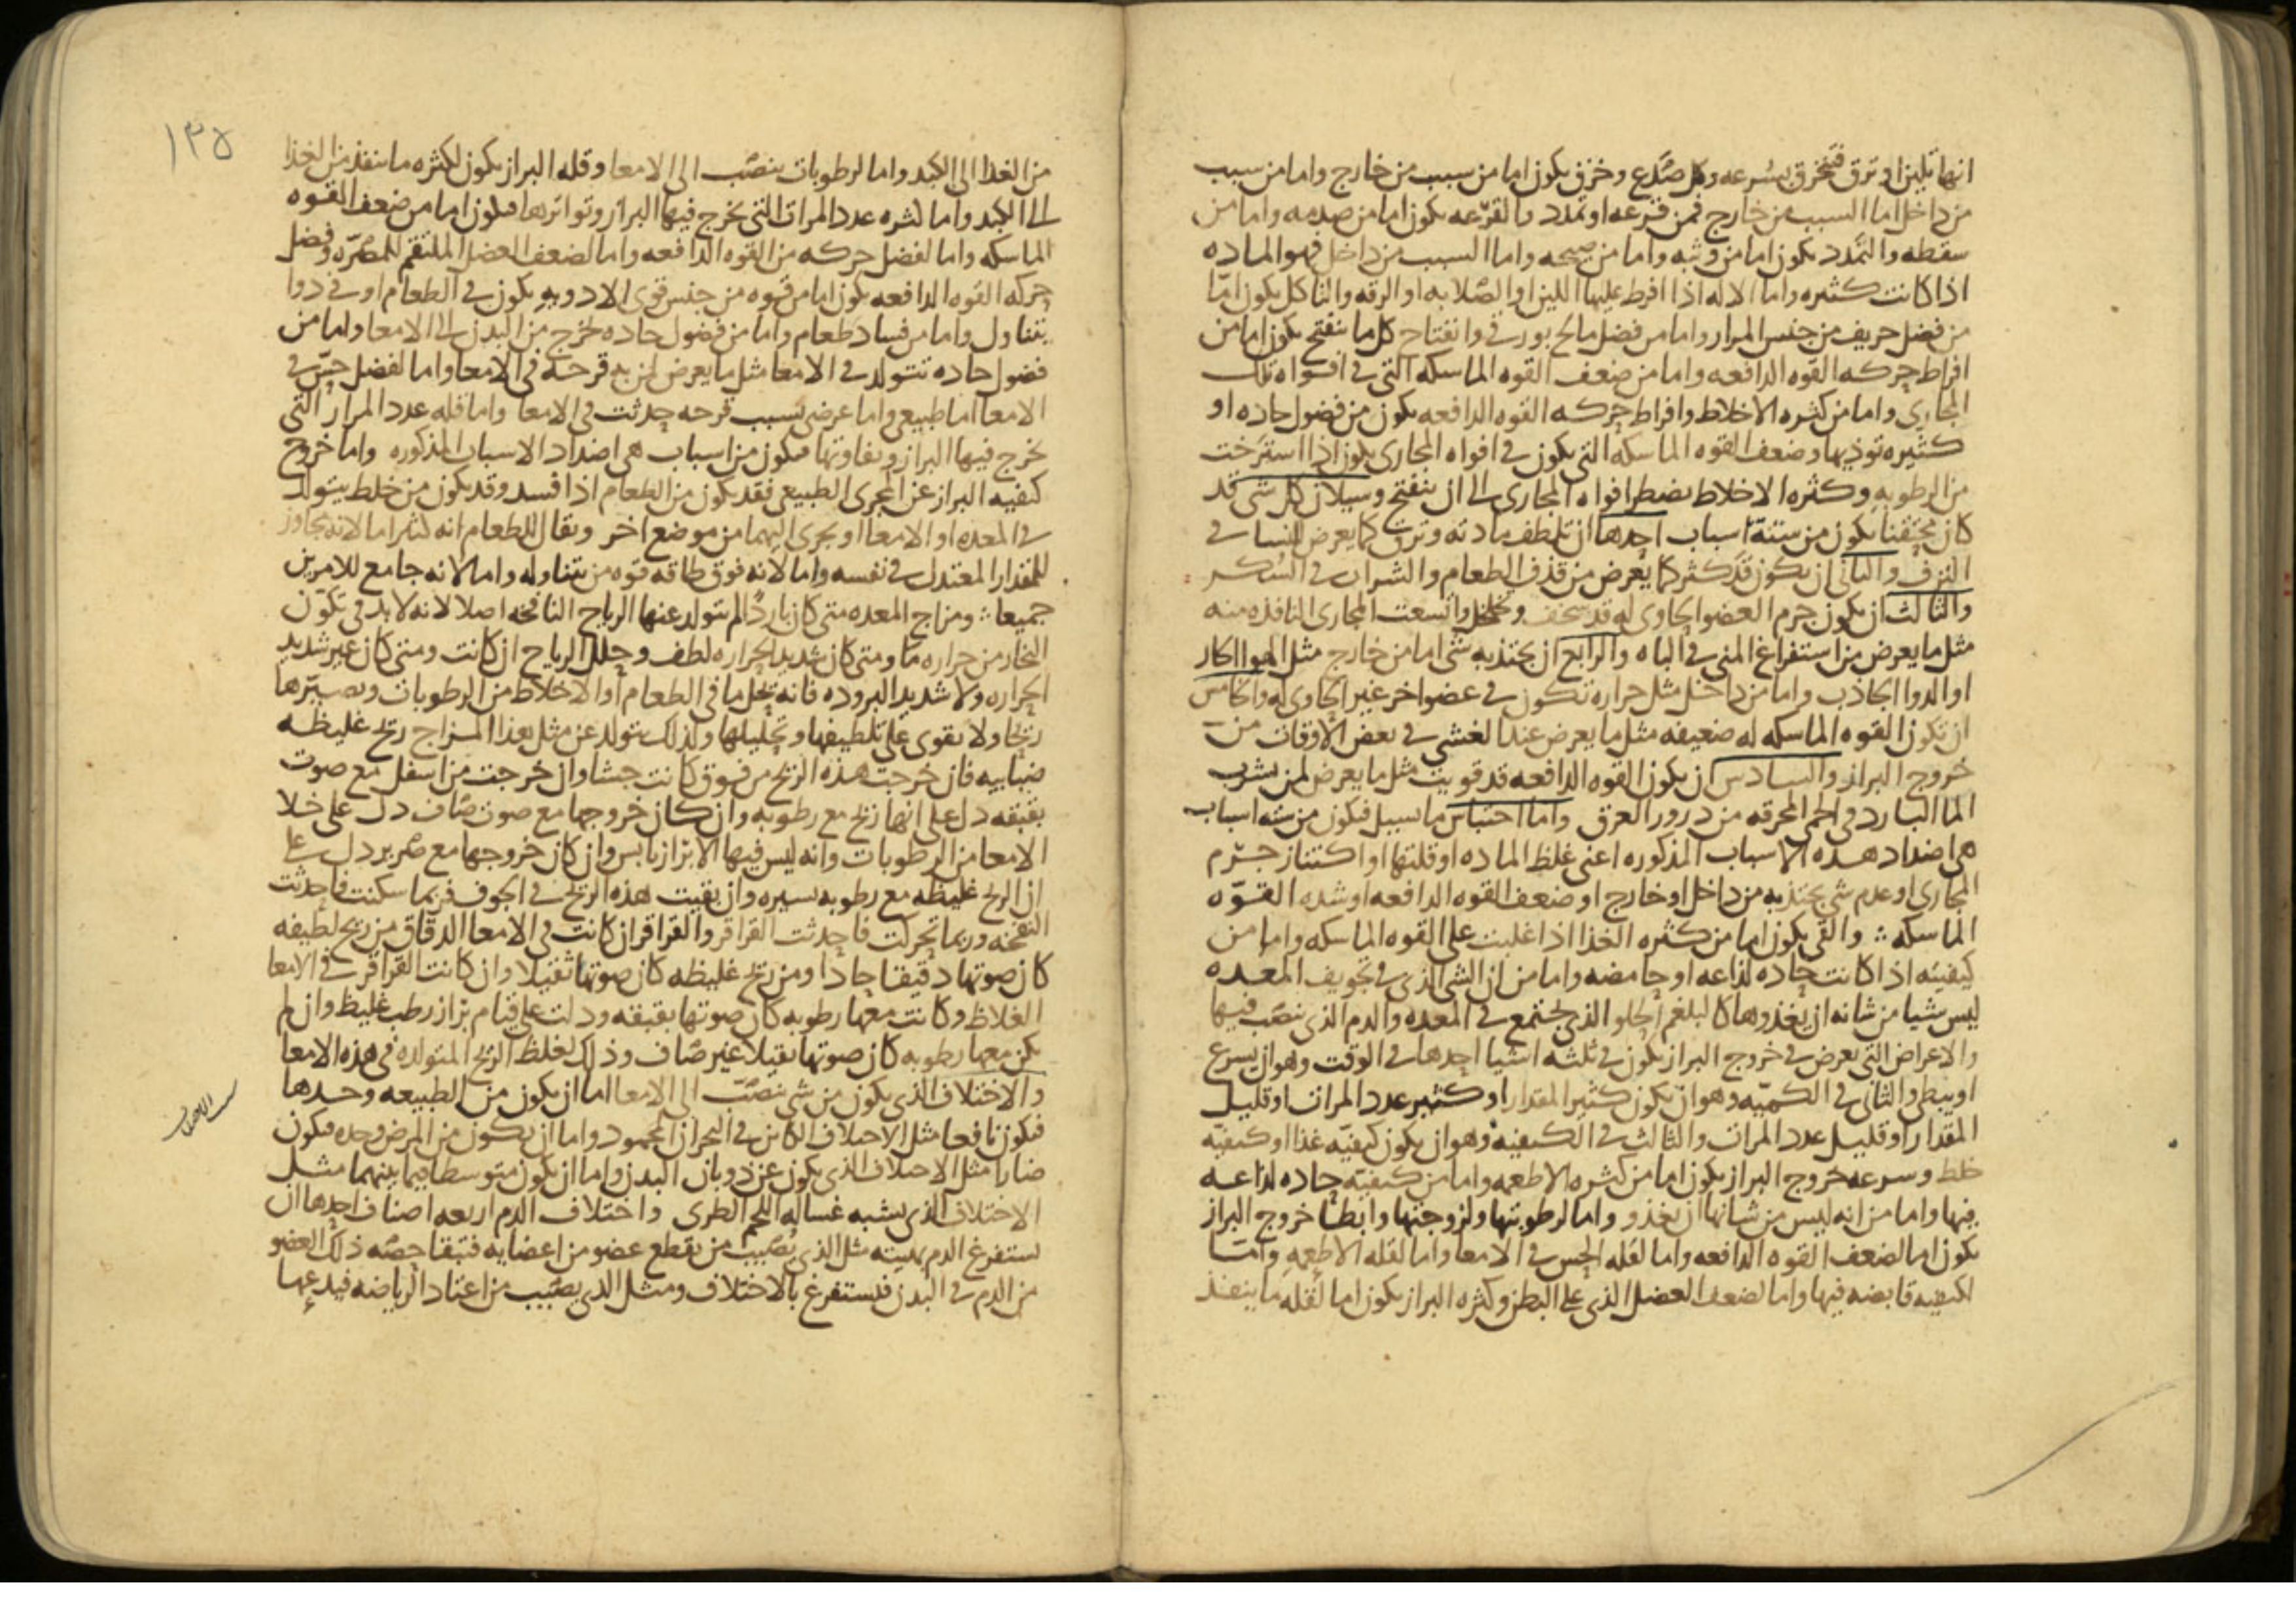 انها تلين او ترق فتنخرق بسرعه وكل صدع وخرق يكون اما من سبب من خارج واما من سبب
من داخل اما السبب من خارج فمن قرعه او تمدد والقرعه يكون اما من صدمه واما من
سقطه والتمدد يكون اما من وثبه واما من صيحه واما السبب من داخل فهو الماده
اذا كانت كثيره واما الاله اذا افرط عليها اللين او الصلابه او الرقه والتاكل يكون اما
من فضل حريف من جنس المرار واما من فضل مالح بورقي وانفتاح كل ما ينفتح يكون اما من
افراط حركه القوه الدافعه واما من ضعف القوه الماسكه التي في افواه تلك
المجاري واما من كثره الاخلاط وافراط حركه القوه الدافعه يكون من فضول حاده او
كثيره توذيها وضعف القوه الماسكه التي يكون في افواه المجاري يكون اذا استرخت
من الرطوبه وكثره الاخلاط يضطر افواه المجاري الى ان ينفتح وسيلان كل شي قد
كان محتقنا يكون من ستة اسباب احدها ان تلطف مادته وترق كما يعرض للنسا في
النزف والثاني ان يكون قد كثر كما يعرض من قذف الطعام والشراب في السكر
والثالث ان يكون جرم العضو الحاوي له قد سخف وتخلخل واتسعت المجاري النافذه منه
مثل ما يعرض من استفراغ المني في الباه والرابع ان يجتذبه شي اما من خارج مثل الهوا الحار
او الدوا الجاذب واما من داخل مثل حراره تكون في عضو اخر غير الحاوي له والخامس
ان تكون القوه الماسكه له ضعيفه مثل ما يعرض عند الغشي في بعض الاوقات من
خروج البراز والسادس ان يكون القوه الدافعه قد قويت مثل ما يعرض لمن يشرب
الما البارد في الحمى المحرقه من درور العرق واما احتباس ما يسيل فيكون من سته اسباب
هي اضداد هذه الاسباب المذكوره اعني غلظ الماده او قلتها او اكتناز جرم
المجاري او عدم شي يجتذبه من داخل او خارج او ضعف القوه الدافعه او شده القوه
الماسكه والقي يكون اما من كثره الغذا اذا غلبت على القوه الماسكه واما من
كيفيته اذا كانت حاده لذاعه او حامضه واما من ان الشي الذي في تجويف المعده
ليس شيا من شانه ان يغذوها كالبلغم الحلو الذي يجتمع في المعده والدم الذي ينصب فيها
والاعراض التي تعرض في خروج البراز يكون في ثلثه اشيا احدها في الوقت وهو ان يسرع
او يبطي والثاني في الكميه وهو ان يكون كثير المقدار او كثير عدد المرات او قليل
المقدار او قليل عدد المرات والثالث في الكيفيه وهو ان يكون كيفيه غذا او كيفيه
خلط وسرعه خروج البراز يكون اما من كثره الاطعمه واما من كيفيه حاده لذاعه
فيها واما من انه ليس من شانها ان تغذو واما لرطوبتها ولزوجتها وابطا خروج البراز
يكون اما لضعف القوه الدافعه واما لقله الحس في الامعا واما لقله الاطعمه واما
لكيفيه قابضه فيها واما لضعف العضل الذي على البطن وكثره البراز يكون اما لقله ما ينفذ
١٣٥
من الغذا الى الكبد واما لرطوبات ينصب الى الامعا وقله البراز يكون لكثره ما ينفذ من الغذا
الى الكبد واما كثره عدد المرات التي يخرج فيها البراز وتواترها فيكون اما من ضعف القوه
الماسكه واما لفضل حركه من القوه الدافعه واما لضعف العضل الملتقم للصره وفضل
حركه القوه الدافعه يكون اما من قوه من جنس قوى الادويه يكون في الطعام او في دوا
يتناول واما من فساد طعام واما من فضول حاده تخرج من البدن الى الامعا واما من
فضول حاده تتولد في الامعا مثل ما يعرض لمن به قرحه في الامعا واما لفضل حس في
الامعا اما طبيعي واما عرضي بسبب قرحه حدثت في الامعا واما قله عدد المرار التي
يخرج فيها البراز وتفاوتها فيكون من اسباب هي اضداد الاسباب المذكوره واما خروج
كيفيه البراز عن المجرى الطبيعي فقد يكون من الطعام اذا فسد وقد يكون من خلط يتولد
في المعده او الامعا او يجري اليهما من موضع اخر ويقال للطعام انه كثير اما لانه يجاوز
للمقدار المعتدل في نفسه واما لانه فوق طاقه قوه من يتناوله واما لانه جامع للامرين
جميعا ومزاج المعده متى كان باردا لم يتولد عنها الرياح النافخه اصلا لانه لابد في تكون
البخار من حراره ما ومتى كان شديد الحراره لطف وحلل الرياح ان كانت ومتى كان غير شديد
الحراره ولا شديد البروده فانه يحل ما في الطعام او الاخلاط من الرطوبات ويصيرها
ريحا ولا يقوى على تلطيفها وتحليلها ولذلك يتولد عن مثل هذا المزاج ريح غليظه
ضبابيه فان خرجت هذه الريح من فوق كانت جشا وان خرجت من اسفل مع صوت
بقبقه دل على انها ريح مع رطوبه وان كان خروجها مع صوت صاف دل على خلا
الامعا من الرطوبات وانه ليس فيها الا براز يابس وان كان خروجها مع صرير دل على
ان الريح غليظه مع رطوبه يسيره وان بقيت هذه الريح في الجوف فربما سكنت فاحدثت
النفخه وربما تحركت فاحدثت القراقر والقراقر ان كانت في الامعا الدقاق من ريح لطيفه
كان صوتها دقيقا حادا ومن ريح غليظه كان صوتها ثقيلا وان كانت القراقر في الامعا
الغلاظ وكانت معها رطوبه كان صوتها بقبقه ودلت على قيام براز رطب غليظ وان لم
يكن معها رطوبه كان صوتها ثقيلا غير صاف وذلك لغلظ الريح المتولده في هذه الامعا
والاختلاف الذي يكون من شي ينصب الى الامعا اما ان يكون من الطبيعه وحدها
فيكون نافعا مثل الاختلاف الكاين في البحران المحمود واما ان يكون من المرض وحده فيكون
ضارا مثل الاختلاف الذي يكون عن ذوبان البدن واما ان يكون متوسطا فيما بينهما مثل
الاختلاف الذي يشبه غساله اللحم الطري واختلاف الدم اربعه اصناف احدها ان
يستفرغ الدم بهيئته مثل الذي يصيب من يقطع عضو من اعضايه فتبقا حصه ذلك العضو
من الدم في البدن فيستفرغ بالاختلاف ومثل الذي يصيب من اعتاد الرياضه فيدعها